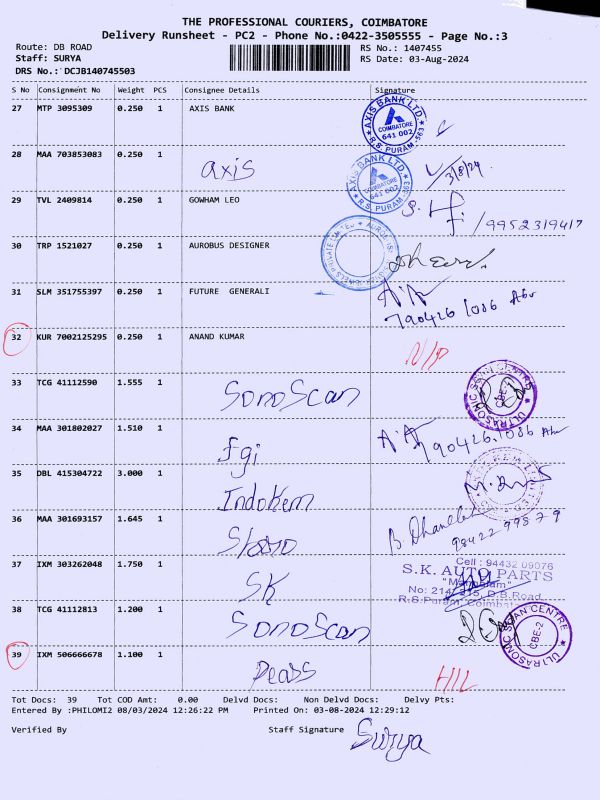 THE PROFESSIONAL COURIERS, COIMBATORE
Delivery Runsheet - PC2 - Phone No.:0422-3505555 - Page No.:3
Route: DB ROAD RS No.: 1407455
Staff: SURYA RS Date: 03-Aug-2024
DRS No.: DCJB140745503
S No Consignment No Weight PCS Consignee Details Signature
27 MTP 3095309 0.250 1 AXIS BANK
AXIS BANK LTD. COIMBATORE 641 002 R.S. PURAM-563
28 MAA 703853083 0.250 1 axis
AXIS BANK LTD. COIMBATORE 641 002 R.S. PURAM
3/8/24
29 TVL 2409814 0.250 1 GOWHAM LEO
9952319417
30 TRP 1521027 0.250 1 AUROBUS DESIGNER
31 SLM 351755397 0.250 1 FUTURE GENERALI
790426 1086
32 KUR 7002125295 0.250 1 ANAND KUMAR
33 TCG 41112590 1.555 1 SonoScan
ULTRASONIC SCAN CENTRE CBE-2
34 MAA 301802027 1.510 1 Fgi
790426.1086
35 DBL 415304722 3.000 1 Indokem
36 MAA 301693157 1.645 1
98422 99879
37 IXM 303262048 1.750 1 SK
Cell : 94432 09076
S.K. AUTO PARTS
No: 214/ D.B.Road,
R.S.Puram, Coimbatore
38 TCG 41112813 1.200 1 SonoScan
ULTRASONIC SCAN CENTRE CBE-2
39 IXM 506666678 1.100 1
Tot Docs: 39 Tot COD Amt: 0.00 Delvd Docs: Non Delvd Docs: Delvy Pts:
Entered By :PHILOMI2 08/03/2024 12:26:22 PM Printed On: 03-08-2024 12:29:12
Verified By Staff Signature Surya